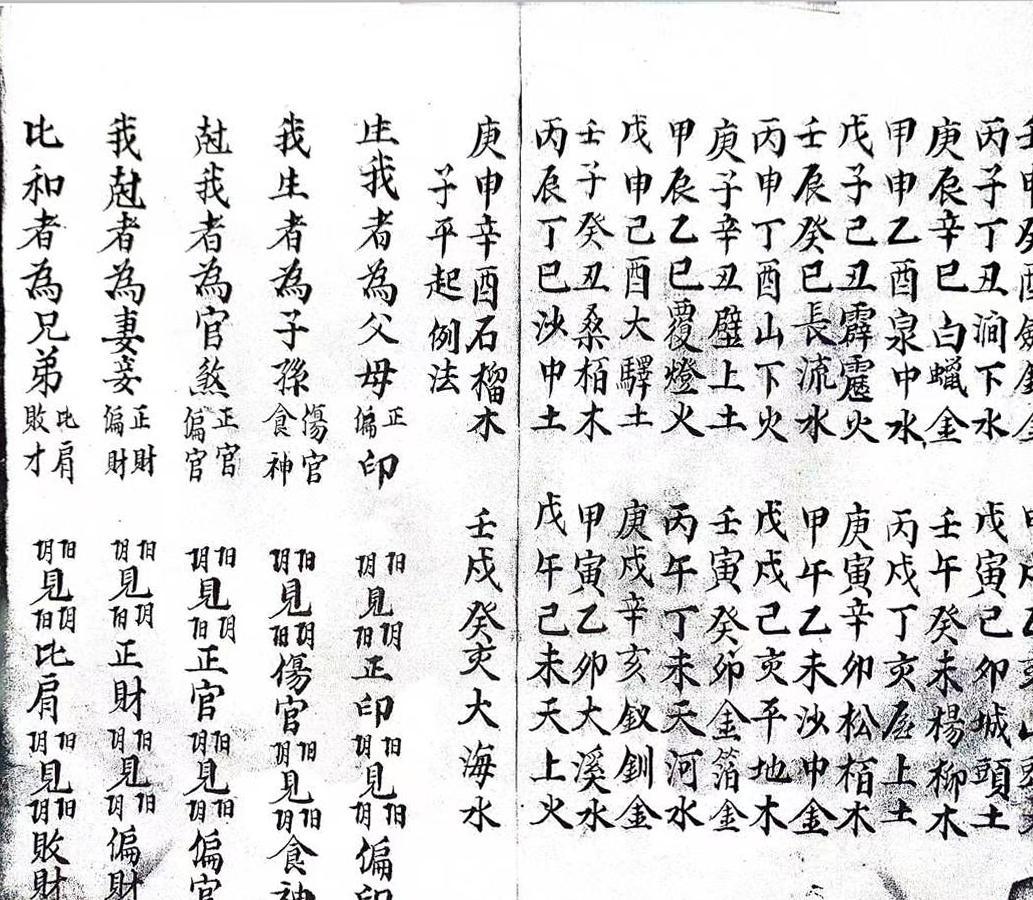 丙子丁丑澗下水 戊寅己卯城頭土
庚辰辛巳白蠟金 壬午癸未楊柳木
甲申乙酉泉中水 丙戌丁亥屋上土
戊子己丑霹靂火 庚寅辛卯松栢木
壬辰癸巳長流水 甲午乙未沙中金
丙申丁酉山下火 戊戌己亥平地木
庚子辛丑壁上土 壬寅癸卯金箔金
甲辰乙巳覆燈火 丙午丁未天河水
戊申己酉大驛土 庚戌辛亥釵釧金
壬子癸丑桑栢木 甲寅乙卯大溪水
丙辰丁巳沙中土 戊午己未天上火
庚申辛酉石榴木 壬戌癸亥大海水
子平起例法
生我者為父母 正偏印 阳阴見阴阳正印阳阴見阳阴偏印
我生者為子孫 傷官食神 阳阴見阴阳傷官阳阴見阳阴食神
尅我者為官煞 正官偏官 阳阴見阴阳正官阳阴見阳阴偏官
我尅者為妻妾 正財偏財 阳阴見阴阳正財阳阴見阳阴偏財
比和者為兄弟 比肩敗才 阳阴見阴阳比肩阳阴見阳阴敗財